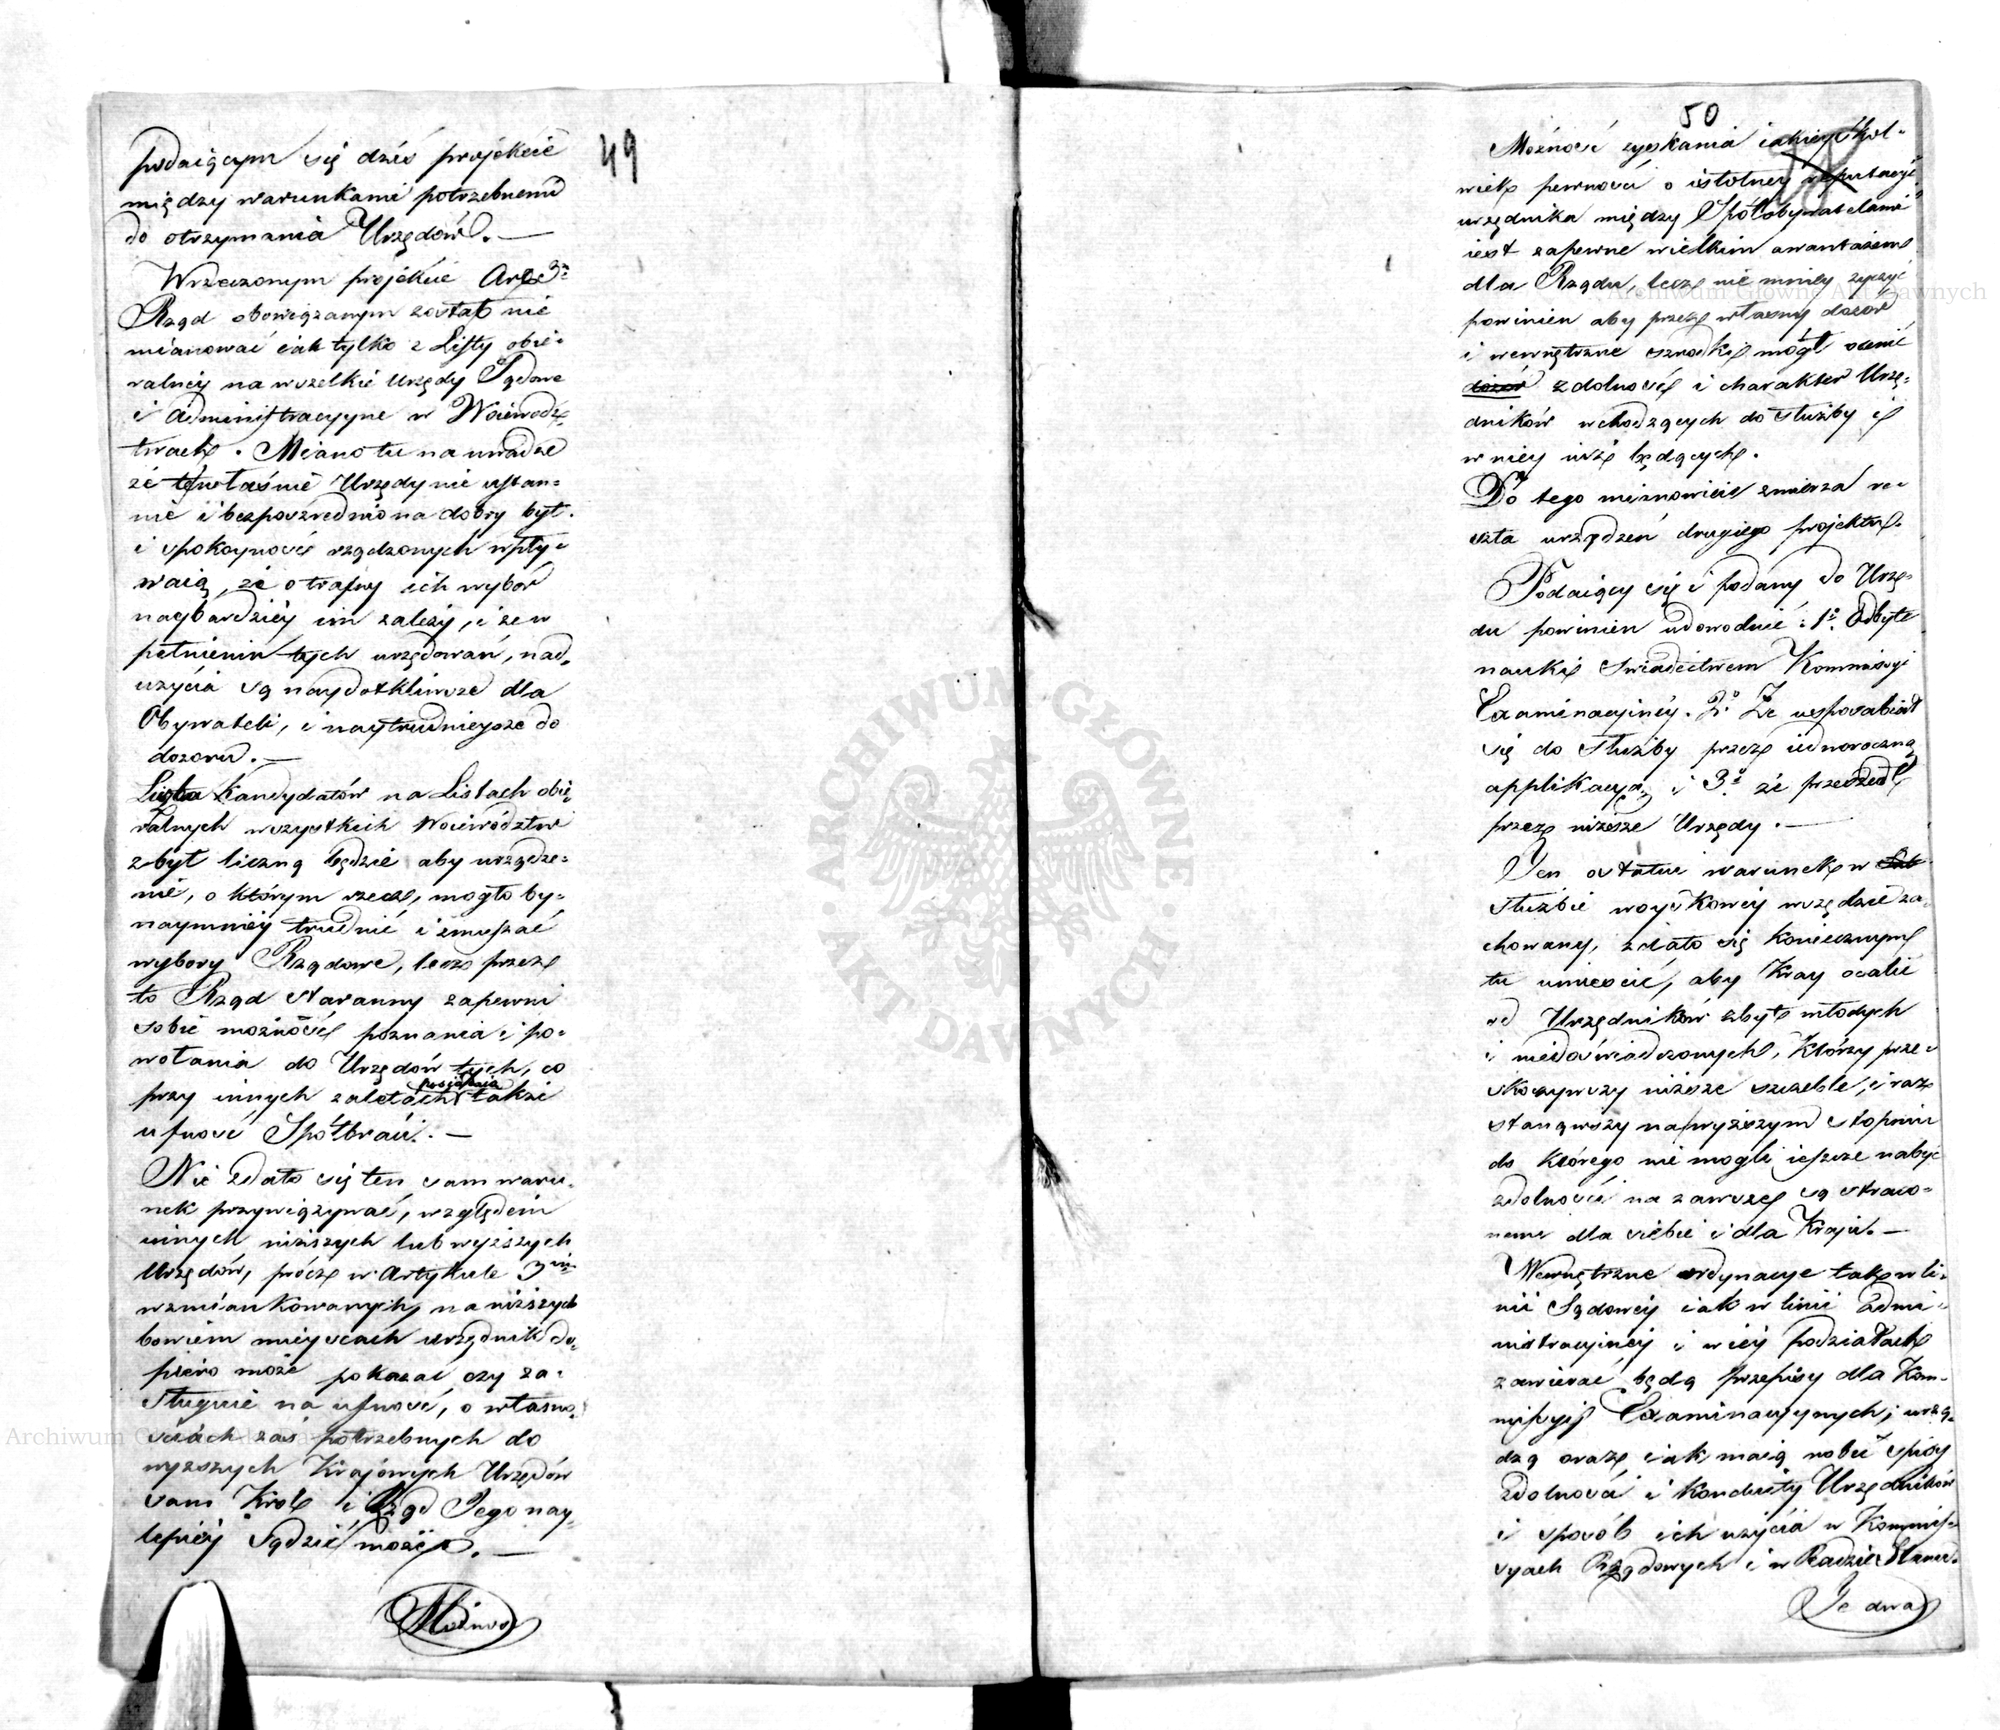 49
podaiącym się dziś projekcie
między warunkami potrzebnemi
do otrzymania Urzędów. —
W rzeczonym projekcie Art. 3º
Rząd obowiązanym został nie
mianować iak tylko z Listy obie-
ralnéy na wszelkie Urzędy Sądowe
i Administracyyne w Woiewódz-
twach. Miano tu na uwadze
że te właśnie Urzędy nie ustan-
nie i bezpośrednio na dobry byt
i spokoyność rządzonych wpły-
waią, że o trafny ich wybór
naybardziéy im zależy, i że w
pełnieniu tych urzędowań, nad-
użycia są naydotkliwsze dla
Obywateli, i naytrudnieysze do
dozoru. —
Liczba Kandydatów na Listach obie-
ralnych wszystkich Woiewództw
zbyt liczną będzie aby urządze-
nie, o którym rzecz, mogło by-
naymniéy trudnić i zmuszać
wybory Rządowe, lecz przez
to Rząd staranny zapewni
sobie możność poznania i po-
wołania do Urzędów tych, co
przy innych zaletach posiadaią także
ufność Spółbraci. —
Nie zdało się ten sam waru-
nek przywiązywać, względem
innych niższych lub wyższych
Urzędów, prócz w Artykule 3im
wzmiankowanych, na niższych
bowiem mieyscach urzędnik do-
piero może pokazać czy za-
sługuie na ufność, o własno-
ściach zaś potrzebnych do
wyższych Krajowych Urzędów
sam Król i Rząd Jego nay-
lepiéy sądzić może. —
Możność
50
Możność zyskania iakieyśkol-
wiek pewności o istotney reputacyi
urzędnika między Spółobywatelami
iest zapewne wielkim awantażem
dla Rządu, lecz nie mniéy życzyć
powinien aby przez własny dozór
i wewnętrzne środki mógł ocenić
dozór zdolność i charakter Urzę-
dników wchodzących do służby i
w niéy iuż będących.
Do tego mianowicie zmierza re-
szta urządzeń drugiego projektu.
Podaiący się i podany do Urzę-
du powinien udowodnić: 1º. Odbyte
nauki świadectwem Kommissyi
Examinacyinéy. 2º. Że usposabiał
się do służby przez iednoroczną
applikacyą, i 3º. że przeszedł
przez niższe Urzędy. —
Ten ostatni warunek w
służbie woyskowéy wszędzie za-
chowany, zdało się koniecznym
tu umieścić, aby Kray ocalić
od Urzędników zbyt młodych
i niedoświadczonych, którzy prze-
skoczywszy niższe szczeble, i raz
stanąwszy na wyższym stopniu
do którego nie mogli ieszcze nabyć
zdolności na zawsze są straco-
nemi dla siebie i dla Kraju. —
Wewnętrzne ordynacye tak w li-
nii Sądowéy iak w linii Admi-
nistracyinéy i w iéy podziałach
zawierać będą przepisy dla Kom-
missyi Examinacyynych; urzą-
dzą oraz iak maią robić spisy
zdolności i konduity Urzędników
i sposób ich użycia w Kommis-
syach Rządowych i w Radzie Stanu.
Te dwa
Archiwum Główne Akt Dawnych
ARCHIWUM GŁÓWNE AKT DAWNYCH
Archiwum Główne Akt Dawnych